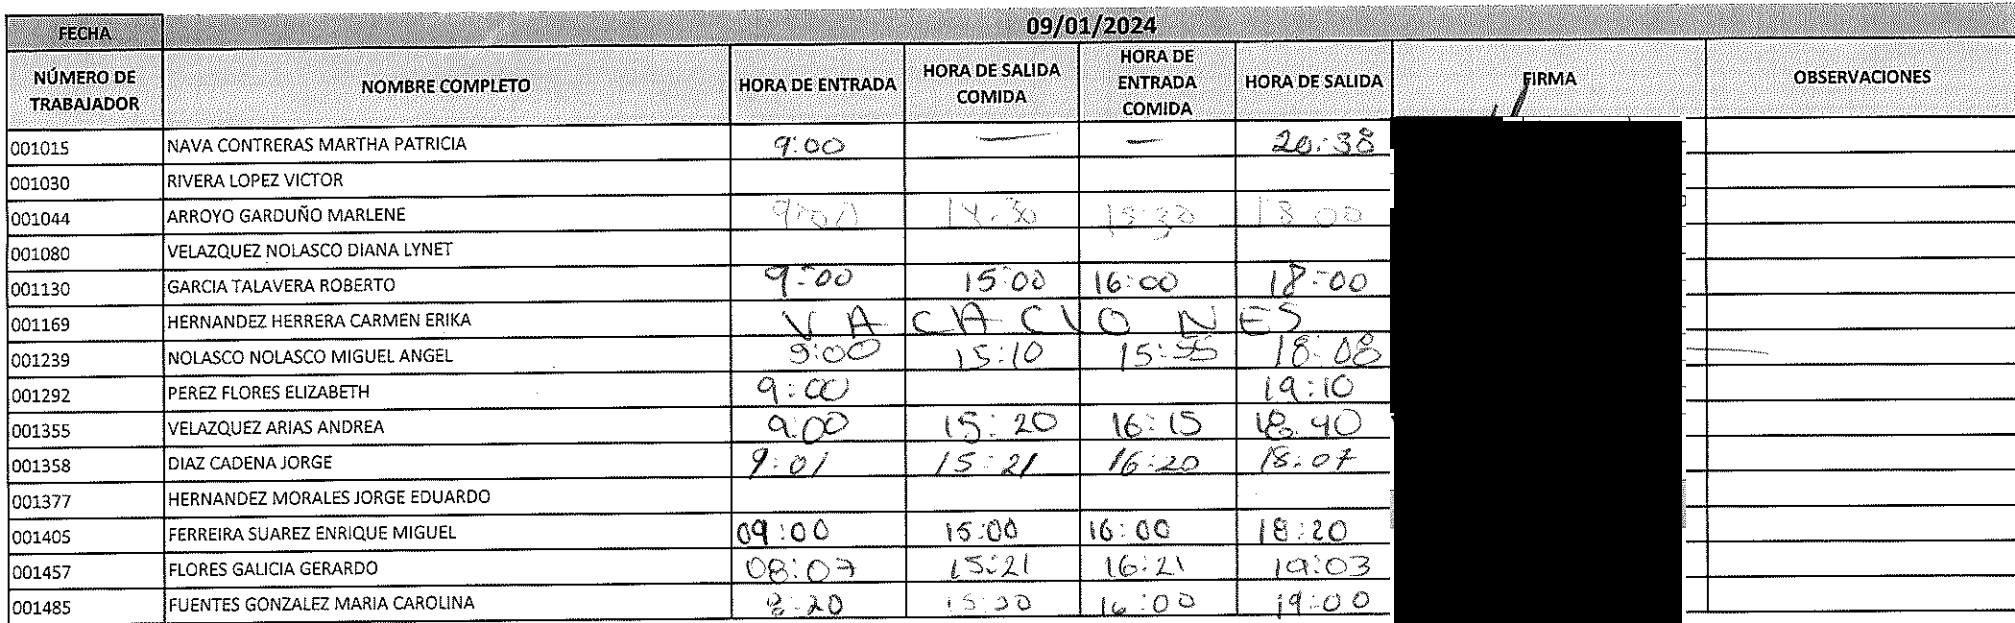 FECHA 09/01/2024
NÚMERO DE TRABAJADOR NOMBRE COMPLETO HORA DE ENTRADA HORA DE SALIDA COMIDA HORA DE ENTRADA COMIDA HORA DE SALIDA FIRMA OBSERVACIONES
001015 NAVA CONTRERAS MARTHA PATRICIA 9:00 — — 20:38
001030 RIVERA LOPEZ VICTOR
001044 ARROYO GARDUÑO MARLENE 9:00 14:30 15:30 18:00
001080 VELAZQUEZ NOLASCO DIANA LYNET
001130 GARCIA TALAVERA ROBERTO 9:00 15:00 16:00 18:00
001169 HERNANDEZ HERRERA CARMEN ERIKA VACACIONES
001239 NOLASCO NOLASCO MIGUEL ANGEL 9:00 15:10 15:55 18:08
001292 PEREZ FLORES ELIZABETH 9:00 19:10
001355 VELAZQUEZ ARIAS ANDREA 9:00 15:20 16:15 18:40
001358 DIAZ CADENA JORGE 9:01 15:21 16:20 18:07
001377 HERNANDEZ MORALES JORGE EDUARDO
001405 FERREIRA SUAREZ ENRIQUE MIGUEL 09:00 15:00 16:00 18:20
001457 FLORES GALICIA GERARDO 08:07 15:21 16:21 19:03
001485 FUENTES GONZALEZ MARIA CAROLINA 8:20 16:00 19:00